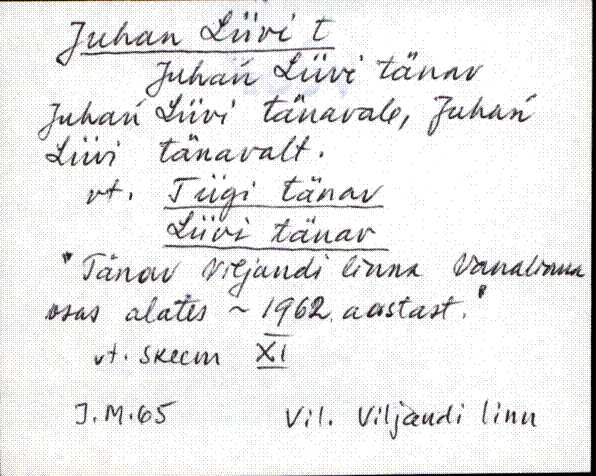 Juhan Liivi t
Juhań Liivi tänav
Juhań Liivi tänavale, Juhań
Liivi tänavalt.
vt. Tiigi tänav
Liivi tänav
"Tänav Viljandi linna Vanalinna
osas alates ~ 1962. aastast."
vt. skeem XI
J.M.65 Vil. Viljandi linn